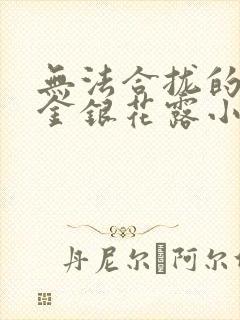 無法合拢的
金銀花露小
丹尼尔 阿尔